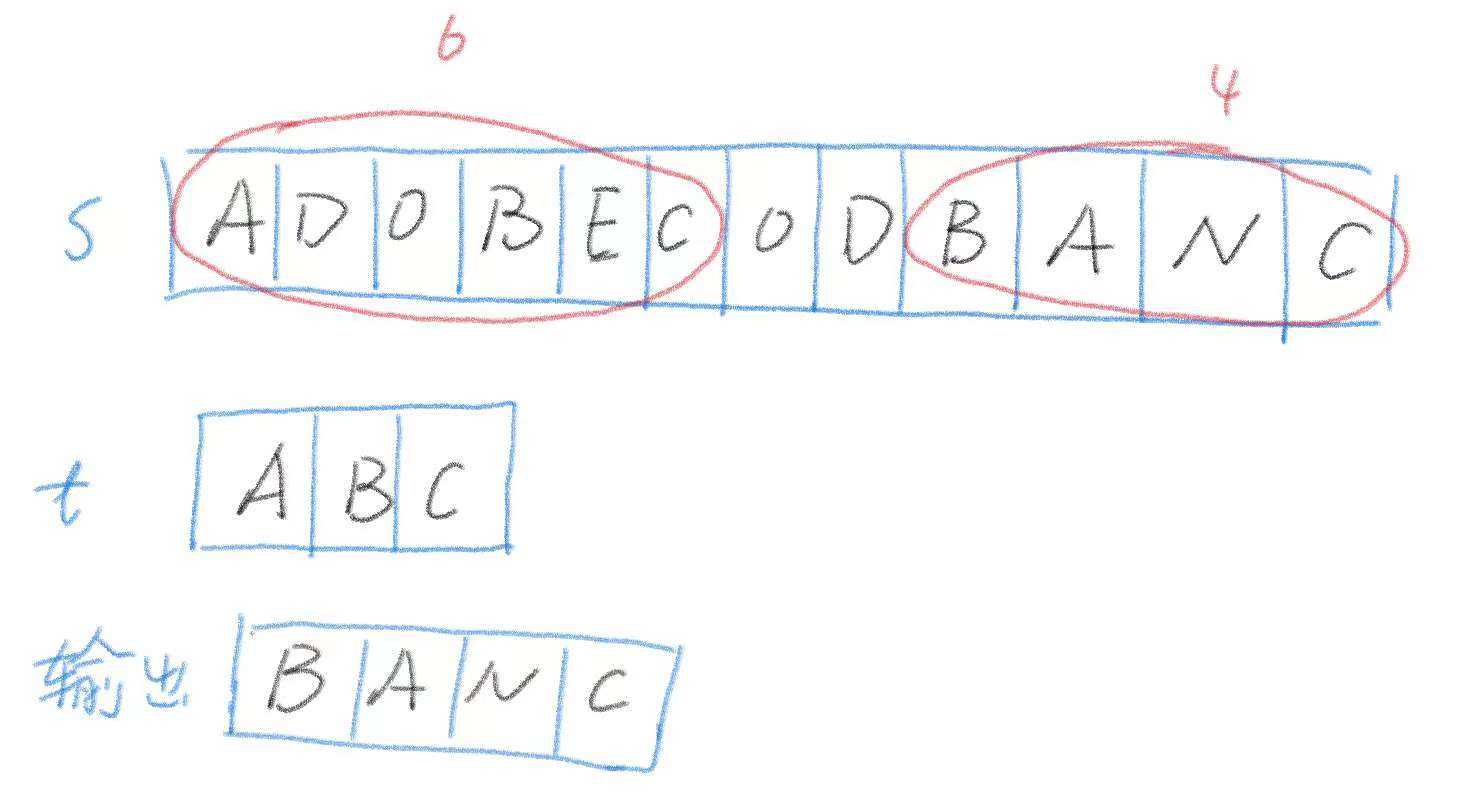 6
4
S A D O B E C O D B A N C
t A B C
输出 B A N C